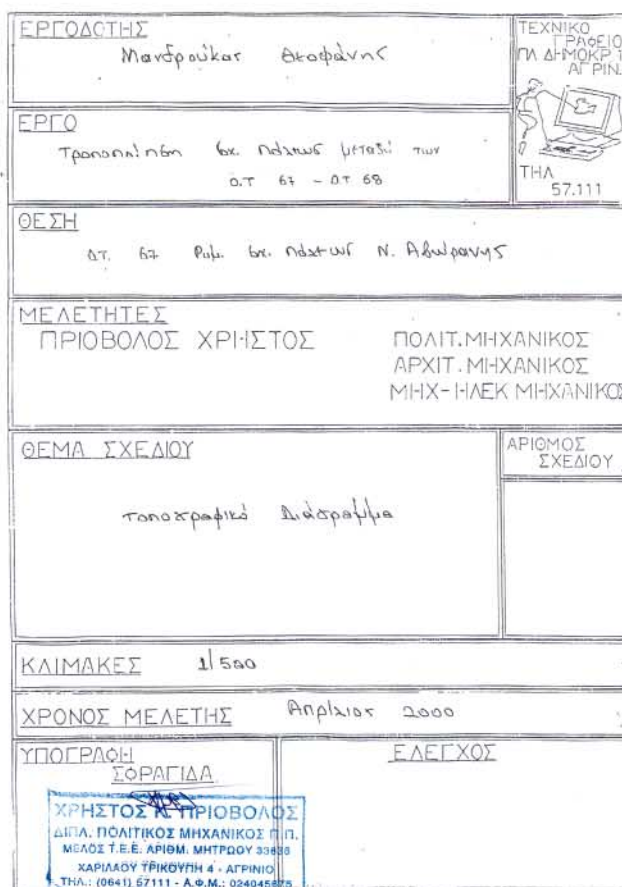 ΕΡΓΟΔΟΤΗΣ
Μανδρούκας Θεοφάνης
ΤΕΧΝΙΚΟ
ΓΡΑΦΕΙΟ
ΠΛ ΔΗΜΟΚΡ
ΑΓΡΙΝ
ΤΗΛ
57.111
ΕΡΓΟ
Τροποποίηση σχ. πόλεως μεταξύ των
Ο.Τ 67 - Ο.Τ 68
ΘΕΣΗ
Ο.Τ. 67 Ρυμ. σχ. πόλεως Ν. Αβώρανης
ΜΕΛΕΤΗΤΕΣ
ΠΡΙΟΒΟΛΟΣ ΧΡΗΣΤΟΣ
ΠΟΛΙΤ.ΜΗΧΑΝΙΚΟΣ
ΑΡΧΙΤ.ΜΗΧΑΝΙΚΟΣ
ΜΗΧ-ΗΛΕΚ ΜΗΧΑΝΙΚΟΣ
ΘΕΜΑ ΣΧΕΔΙΟΥ
ΑΡΙΘΜΟΣ
ΣΧΕΔΙΟΥ
Τοπογραφικό Διάγραμμα
ΚΛΙΜΑΚΕΣ 1/500
ΧΡΟΝΟΣ ΜΕΛΕΤΗΣ Απρίλιος 2000
ΥΠΟΓΡΑΦΗ
ΣΦΡΑΓΙΔΑ
ΕΛΕΓΧΟΣ
ΧΡΗΣΤΟΣ Κ. ΠΡΙΟΒΟΛΟΣ
ΔΙΠΛ. ΠΟΛΙΤΙΚΟΣ ΜΗΧΑΝΙΚΟΣ Π.Π.
ΜΕΛΟΣ Τ.Ε.Ε. ΑΡΙΘΜ. ΜΗΤΡΩΟΥ
ΧΑΡΙΛΑΟΥ ΤΡΙΚΟΥΠΗ 4 - ΑΓΡΙΝΙΟ
ΤΗΛ.: (0641) 57111 - Α.Φ.Μ.: